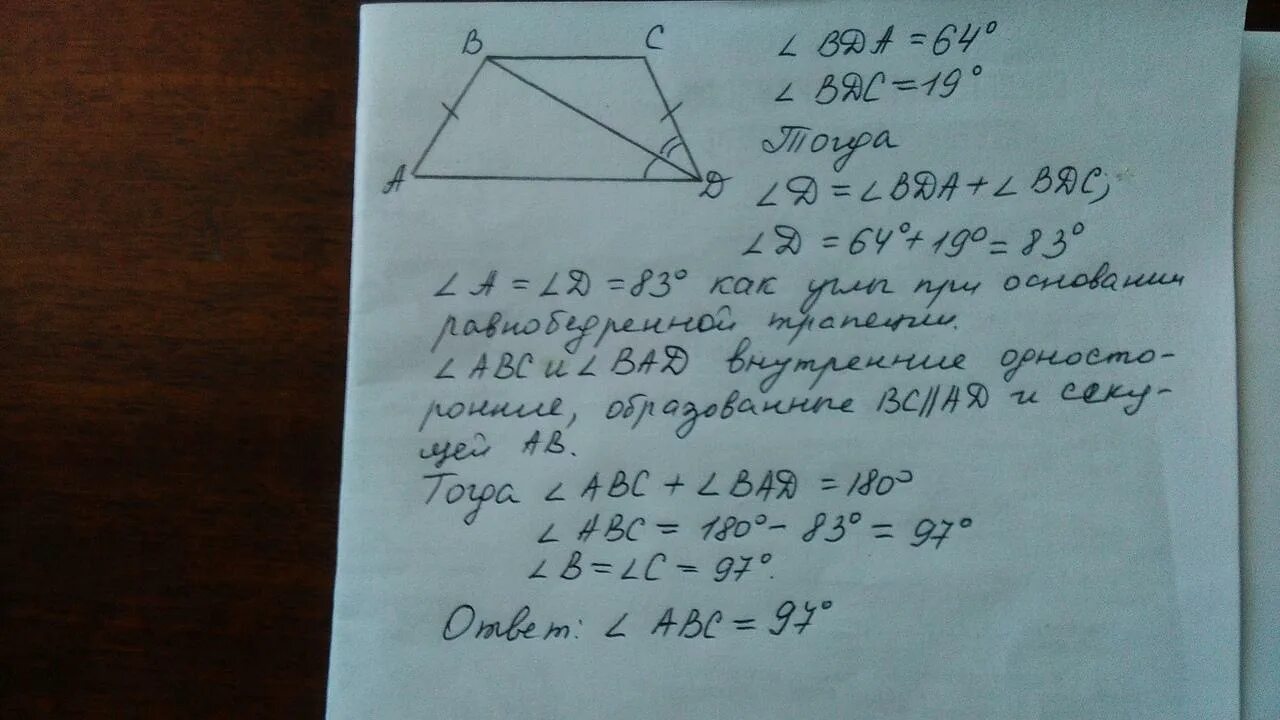 B C
A D
∠ BDA = 64°
∠ BDC = 19°
Тогда
∠D = ∠BDA + ∠BDC;
∠D = 64° + 19° = 83°
∠A = ∠D = 83° как углы при основании
равнобедренной трапеции.
∠ABC и ∠BAD внутренние односто-
ронние, образованные BC∥AD и секу-
щей AB.
Тогда ∠ABC + ∠BAD = 180°
∠ABC = 180° - 83° = 97°
∠B = ∠C = 97°.
Ответ: ∠ABC = 97°